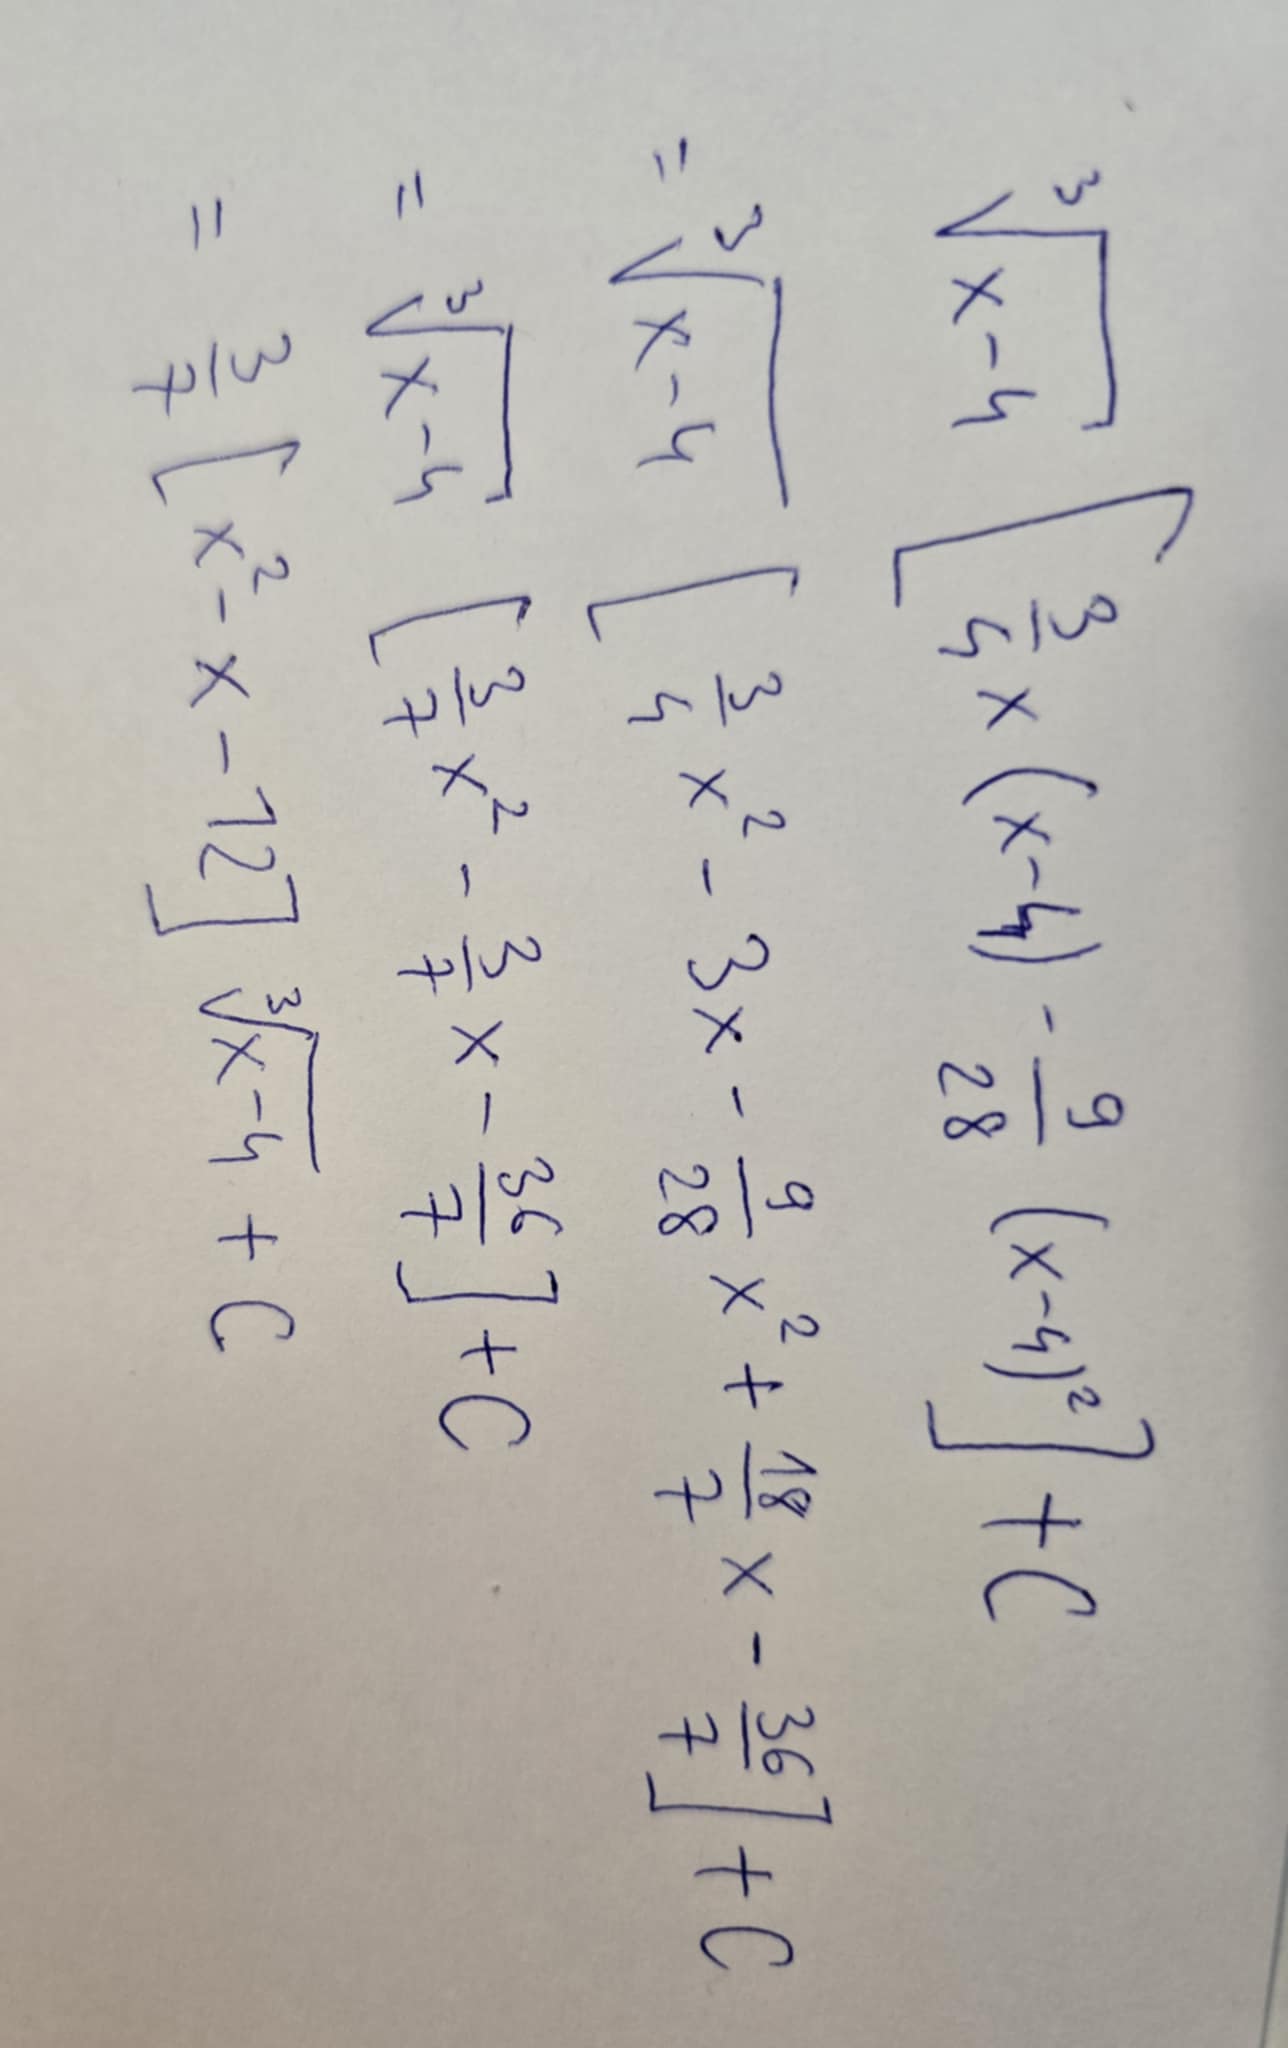 ∛(x-4) [3/4 x (x-4) - 9/28 (x-4)²] + C
= ∛(x-4) [3/4 x² - 3x - 9/28 x² + 18/7 x - 36/7] + C
= ∛(x-4) [3/7 x² - 3/7 x - 36/7] + C
= 3/7 [x² - x - 12] ∛(x-4) + C